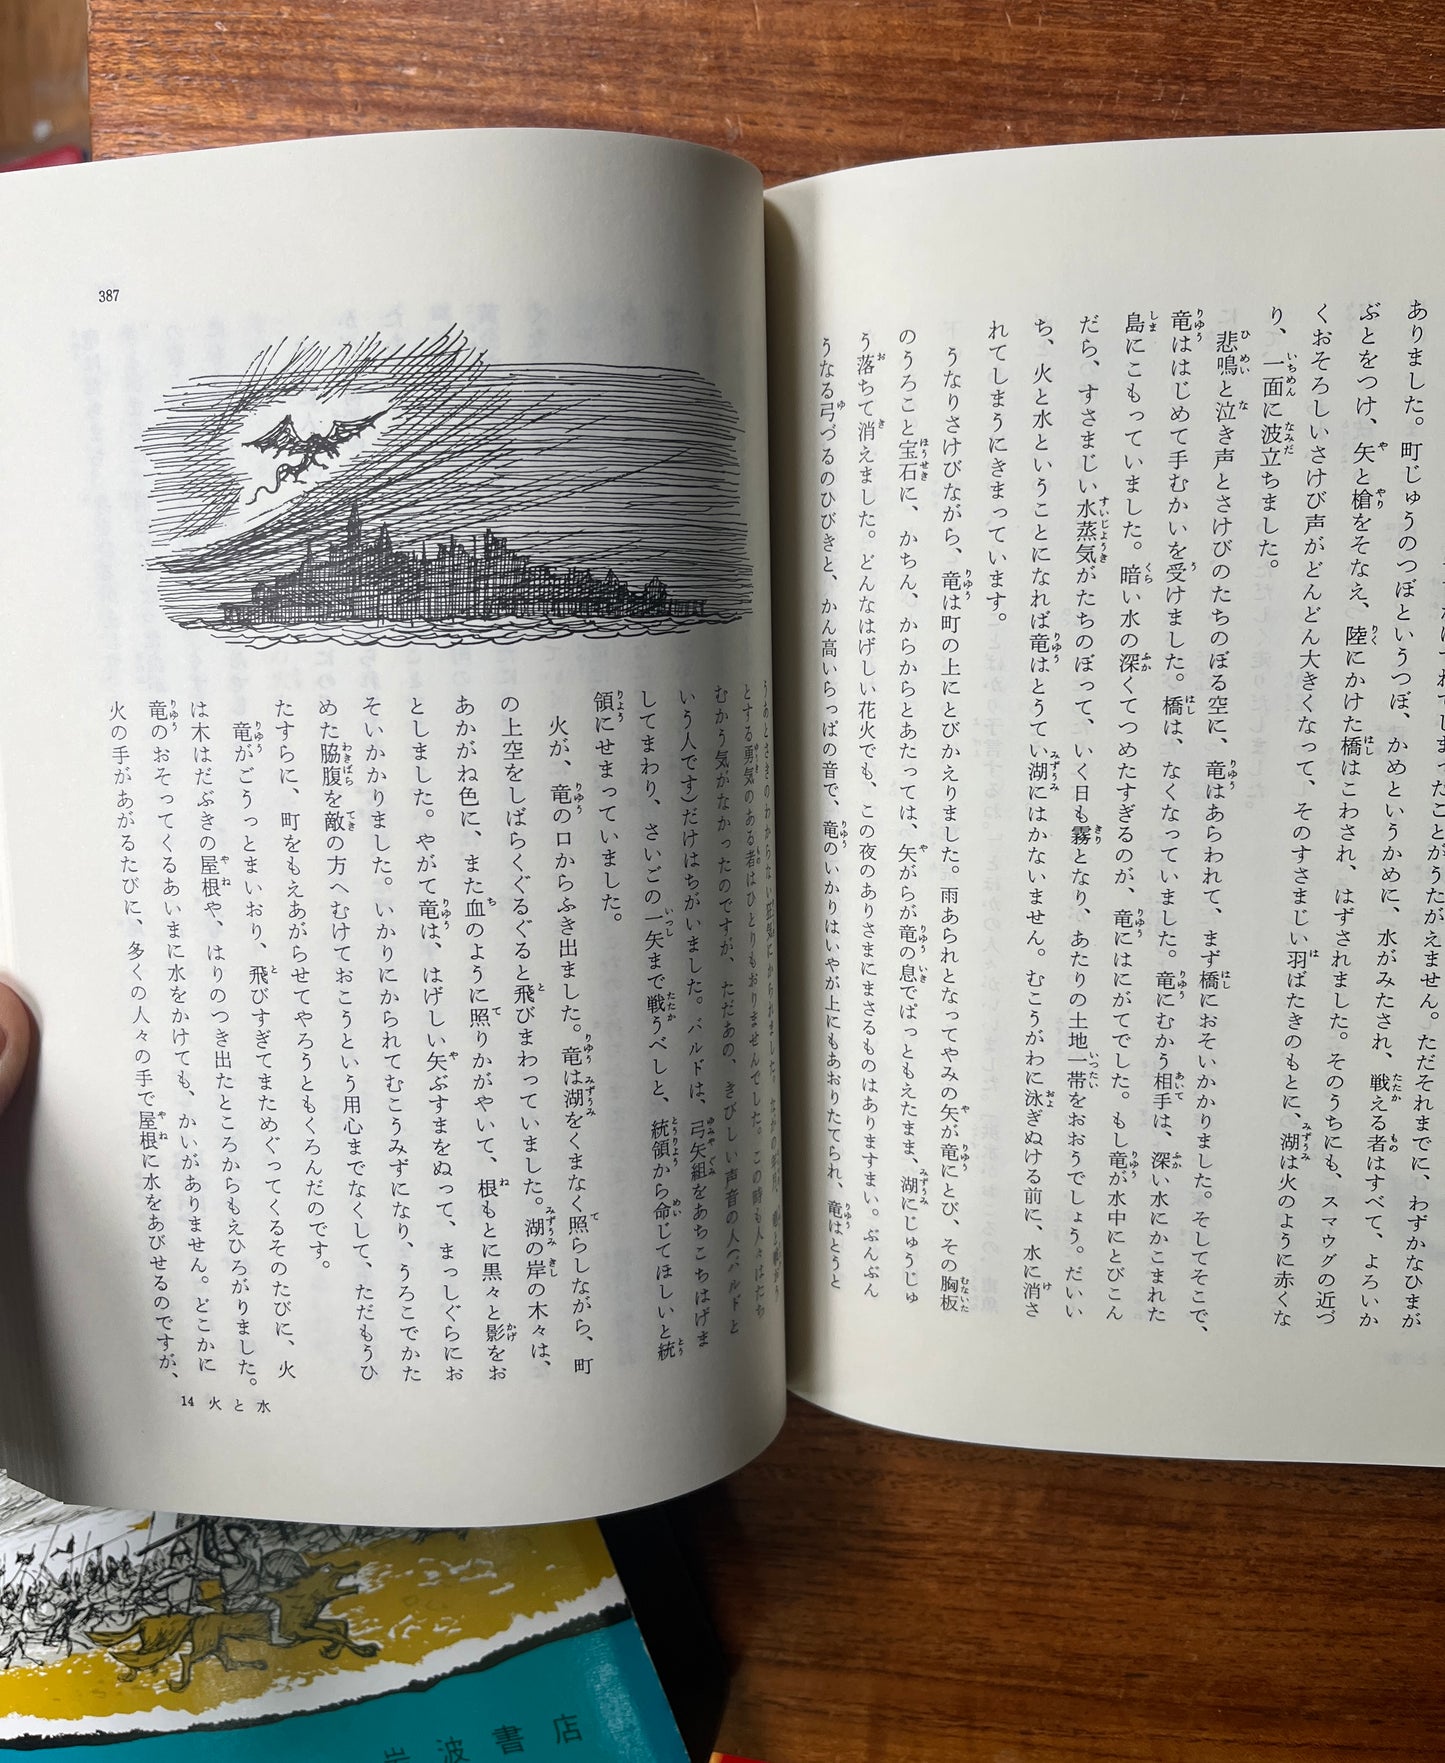 うたがえません。ただそれまでに、わずかなひまが
ありました。町じゅうのつぼというつぼ、かめというかめに、水がみたされ、戦える者はすべて、よろいか
ぶとをつけ、矢と槍をそなえ、陸にかけた橋はこわされ、はずされました。そのうちにも、スマウグの近づ
くおそろしいさけび声がどんどん大きくなって、そのすさまじい羽ばたきのもとに、湖は火のように赤くな
り、一面に波立ちました。
悲鳴と泣き声とさけびのたちのぼる空に、竜はあらわれて、まず橋におそいかかりました。そしてそこで、
竜ははじめて手むかいを受けました。橋は、なくなっていました。竜にむかう相手は、深い水にかこまれた
島にこもっていました。暗い水の深くてつめたすぎるのが、竜にはにがてでした。もし竜が水中にとびこん
だら、すさまじい水蒸気がたちのぼって、いく日も霧となり、あたりの土地一帯をおおうでしょう。だいい
ち、火と水ということになれば竜はとうてい湖にはかないません。むこうがわに泳ぎぬける前に、水に消さ
れてしまうにきまっています。
うなりさけびながら、竜は町の上にとびかえりました。雨あられとなってやみの矢が竜にとび、その胸板
のうろこと宝石に、かちん、からからとあたっては、矢がらが竜の息でぱっともえたまま、湖にじゅうじゅ
う落ちて消えました。どんなはげしい花火でも、この夜のありさまにまさるものはありますまい。ぶんぶん
うなる弓づるのひびきと、かん高いらっぱの音で、竜のいかりはいやが上にもあおりたてられ、竜はとうと
387
うあとさきのわからない狂気にかられました。ながの年月、竜と戦おう
とする勇気のある者はひとりもおりませんでした。この時も人々はたち
むかう気がなかったのですが、ただあの、きびしい声音の人(バルドと
いう人です)だけはちがいました。バルドは、弓矢組をあちこちはげま
してまわり、さいごの一矢まで戦うべしと、統領から命じてほしいと統
領にせまっていました。
火が、竜の口からふき出ました。竜は湖をくまなく照らしながら、町
の上空をしばらくぐるぐると飛びまわっていました。湖の岸の木々は、
あかがね色に、また血のように照りかがやいて、根もとに黒々と影をお
としました。やがて竜は、はげしい矢ぶすまをぬって、まっしぐらにお
そいかかりました。いかりにかられてむこうみずになり、うろこでかた
めた脇腹を敵の方へむけておこうという用心までなくして、ただもうひ
たすらに、町をもえあがらせてやろうともくろんだのです。
竜がごうっとまいおり、飛びすぎてまためぐってくるそのたびに、火
は木はだぶきの屋根や、はりのつき出たところからもえひろがりました。
竜のおそってくるあいまに水をかけても、かいがありません。どこかに
火の手があがるたびに、多くの人々の手で屋根に水をあびせるのですが、
14 火と水
岩波書店